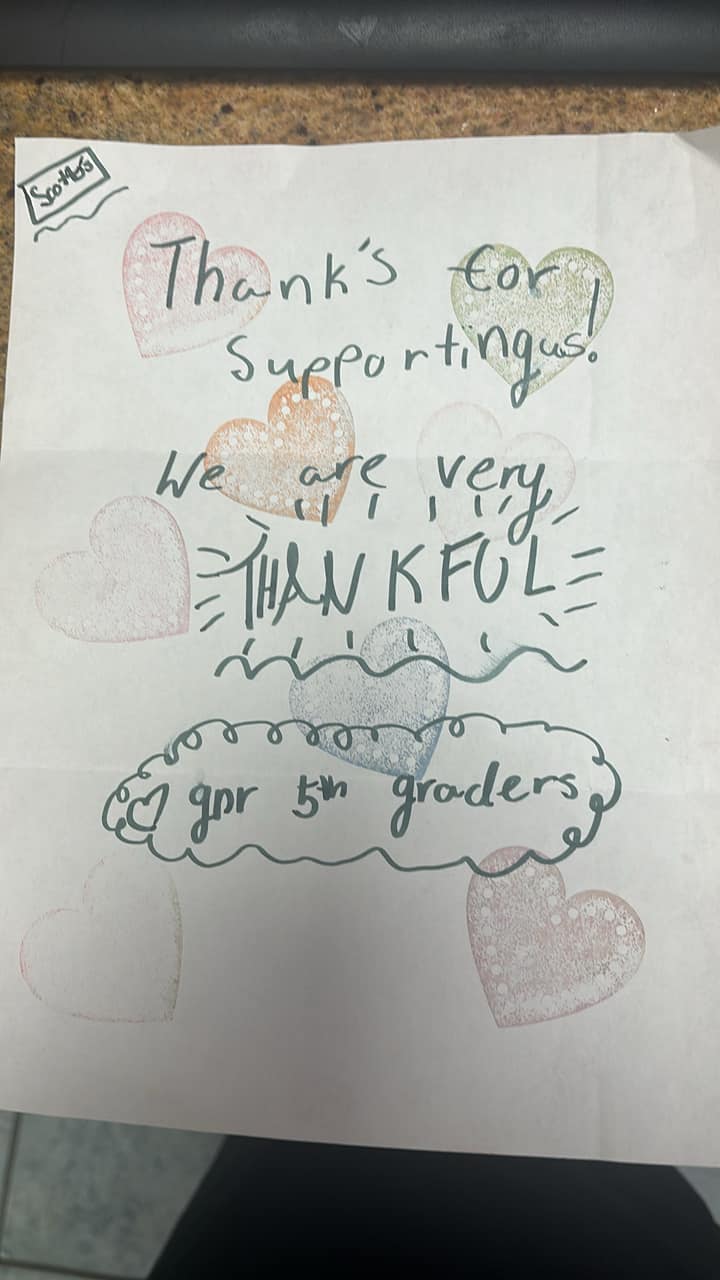 Scotto's
Thank's for
Supporting us!
We are very
THANKFUL
gpr 5th graders